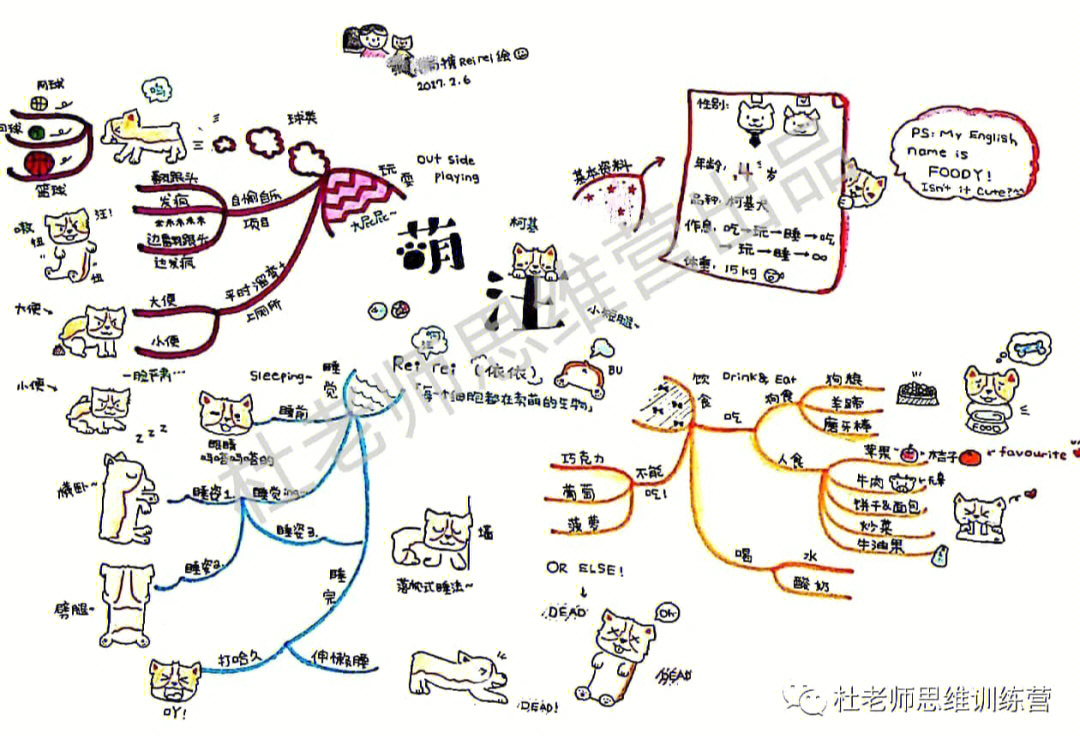 Rei rei 绘
2017.2.6
网球
篮球
球类
玩耍
Out side playing
大尼尼~
翻跟头
发疯
边翻跟头
边发疯
自闹自乐
项目
汪!
扭
扭
平时溜弯+
上厕所
大便
小便
大便
小便
萌
汪
柯基
小短腿~
Rei rei (依依)
「每一个细胞都在卖萌的生物」
BU
基本资料
性别:
年龄: 4岁
品种: 柯基犬
作息: 吃→玩→睡→吃
→玩→睡→∞
体重: 15kg
PS: My English
name is
FOODY!
Isn't it Cute??
睡觉
Sleeping~
睡前
眼睛
吗嗒吗嗒的
z z z
睡觉ing~
睡姿1.
横卧~
睡姿2.
劈腿~
睡姿3.
墙
睡完
打哈欠
吖!
伸懒腰
饮食
Drink & Eat
吃
狗食
狗粮
羊蹄
磨牙棒
FOOD
人食
苹果
桔子
favourite
牛肉
饼干&面包
炒菜
牛油果
喝
水
酸奶
不能吃!
巧克力
葡萄
菠萝
OR ELSE!
DEAD
Oh~
DEAD
DEAD!
杜老师思维营出品
杜老师思维训练营